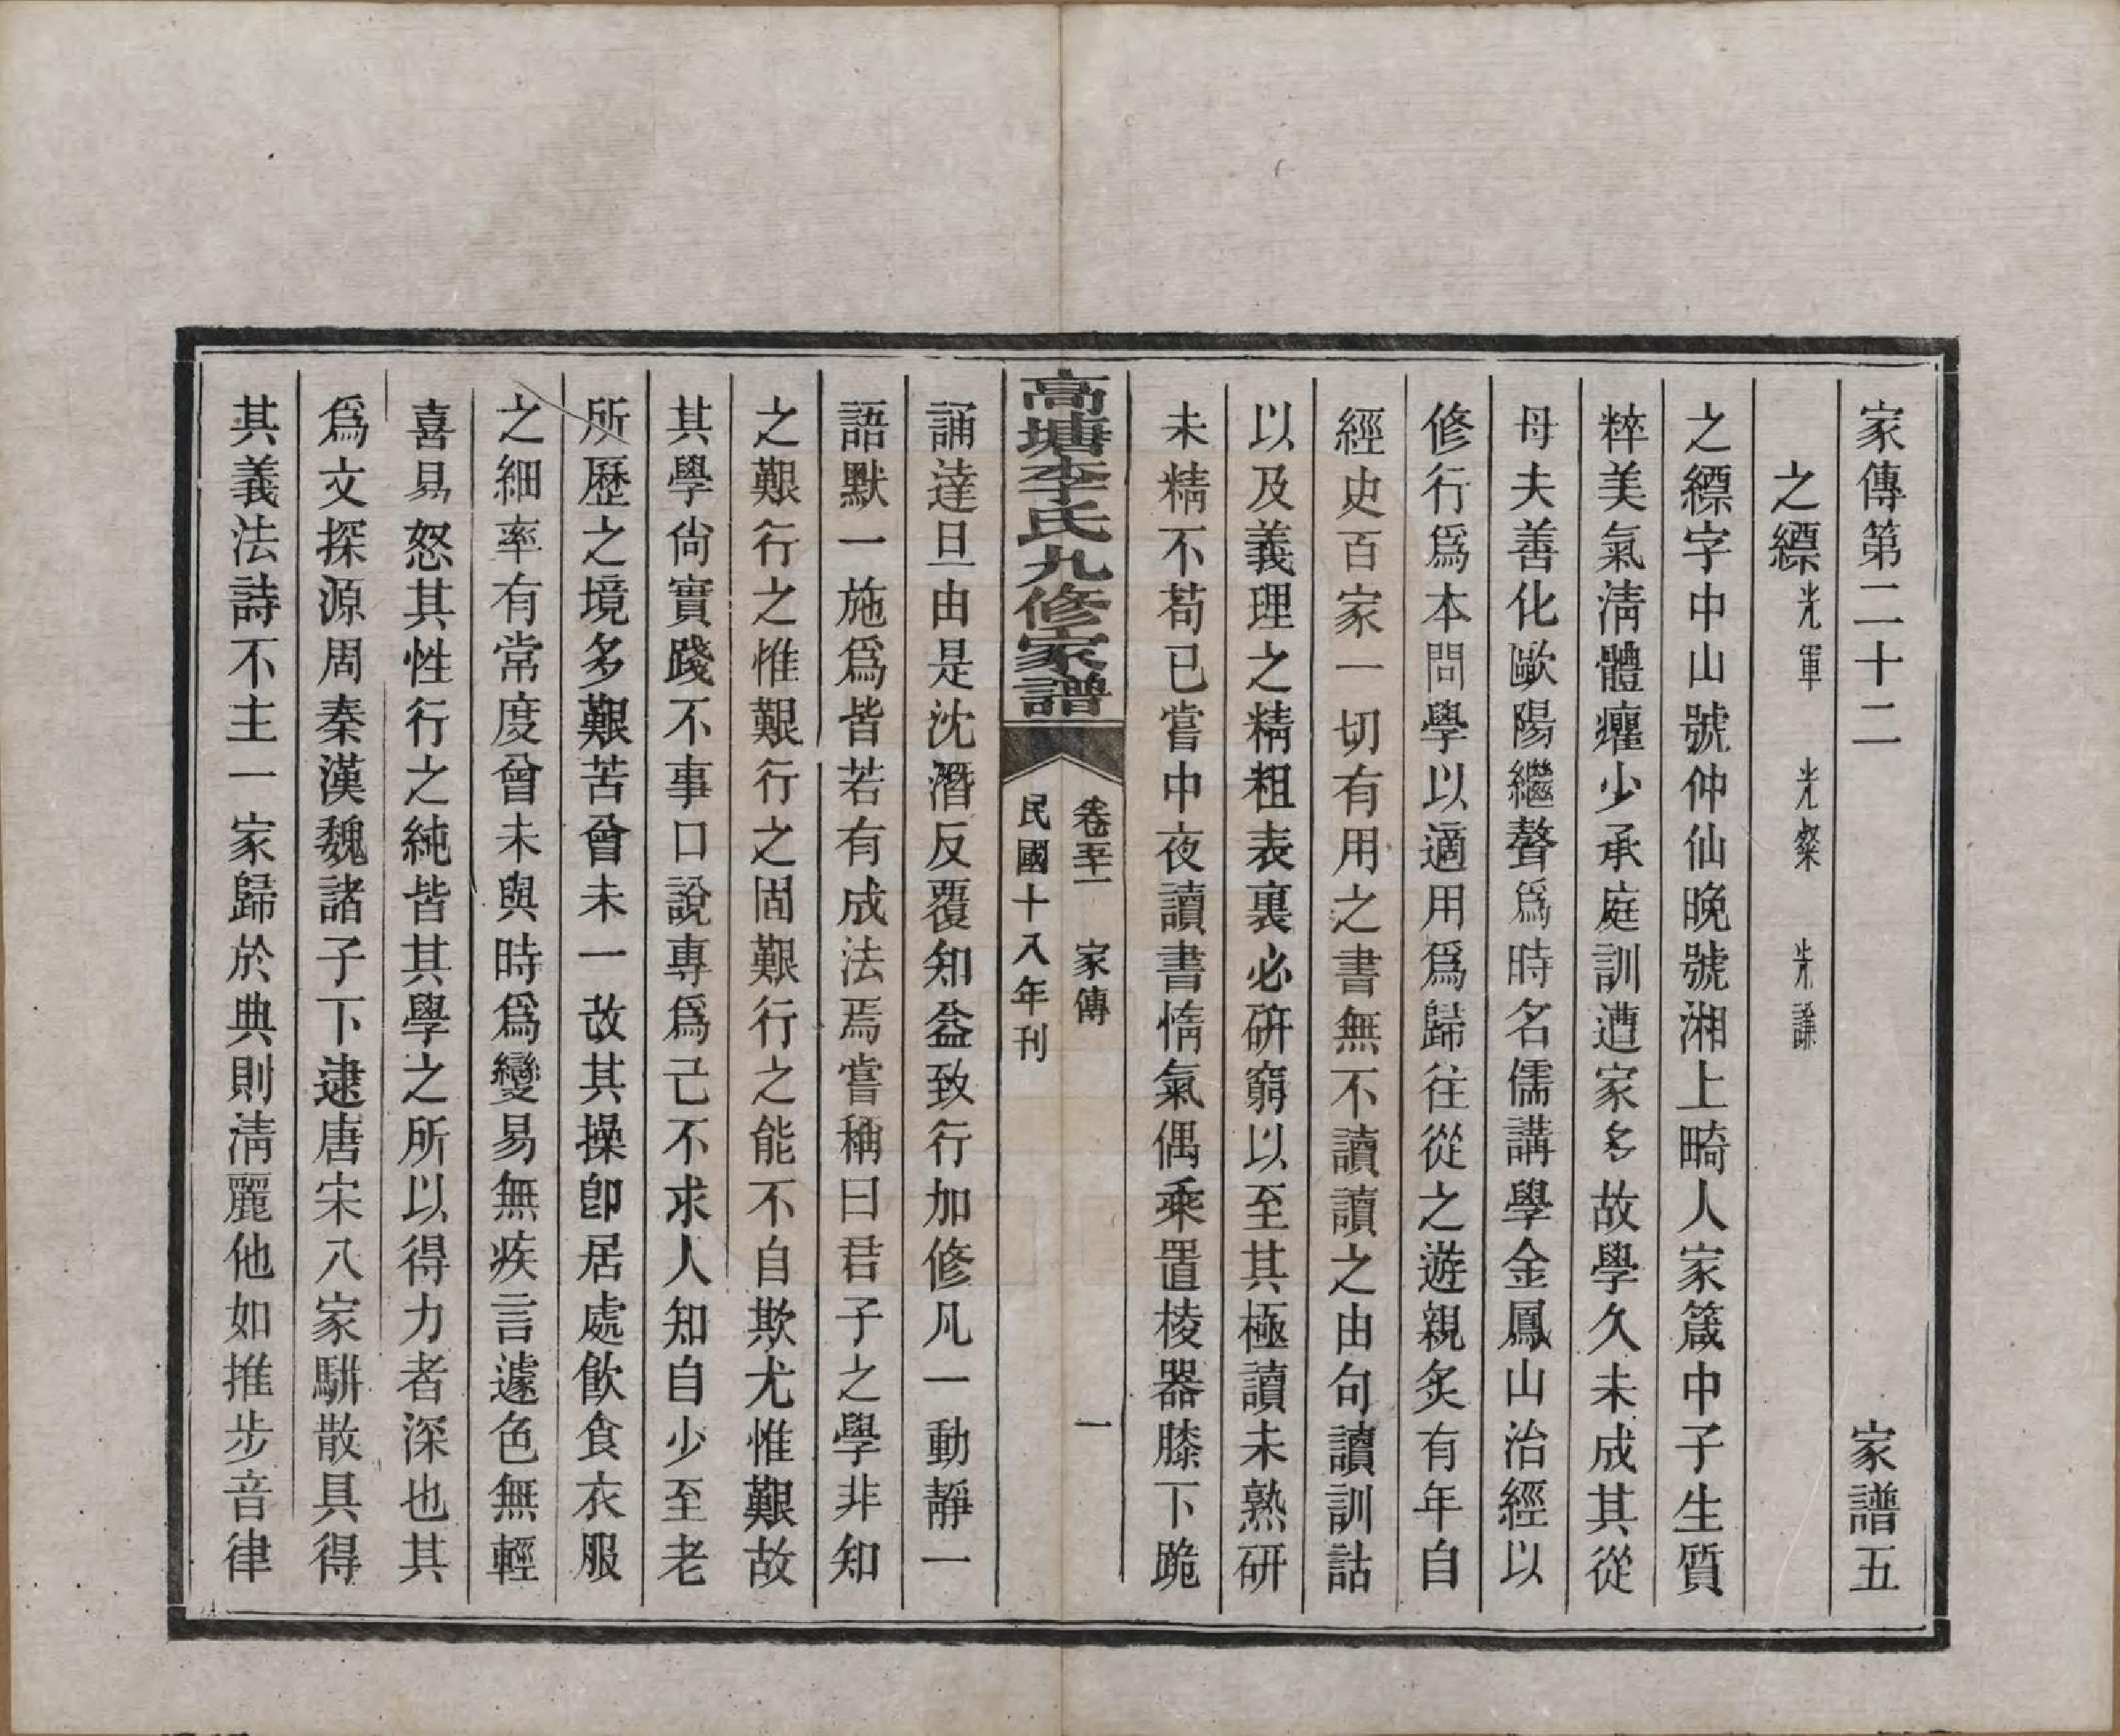 家傳第二十二 家譜五
之縹 光軍 光粲 光謙
之縹字中山號仲仙晚號湘上畸人家箴中子生質
粹美氣淸體癯少承庭訓遭家多故學久未成其從
母夫善化歐陽繼聲爲時名儒講學金鳳山治經以
修行爲本問學以適用爲歸往從之遊親炙有年自
經史百家一切有用之書無不讀讀之由句讀訓詁
以及義理之精粗表裏必硏窮以至其極讀未熟研
未精不苟已嘗中夜讀書惰氣偶乘置棱器膝下跪
高塘李氏九修家譜 卷五十一 家傳 一
民國十八年刊
誦達旦由是沈潛反覆知益致行加修凡一動靜一
語默一施爲皆若有成法焉嘗稱曰君子之學非知
之艱行之惟艱行之固艱行之能不自欺尤惟艱故
其學尙實踐不事口說專爲己不求人知自少至老
所歷之境多艱苦曾未一改其操卽居處飮食衣服
之細率有常度曾未與時爲變易無疾言遽色無輕
喜易怒其性行之純皆其學之所以得力者深也其
爲文探源周秦漢魏諸子下逮唐宋八家駢散具得
其義法詩不主一家歸於典則淸麗他如推步音律